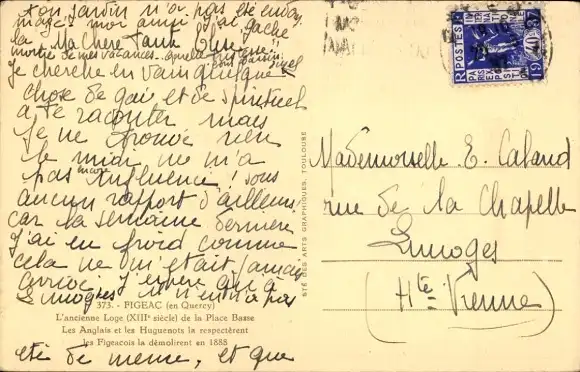 Ton jardin n'a pas été envoy
mage, mon amie, j'ai gâché
la Ma chère Tante
moitié de mes vacances.
Je cherche en vain quelque
chose de gai et de spirituel
à te raconter mais
je ne trouve rien
le midi ne m'a
pas influencé ! sous
aucun rapport d'ailleurs
car la semaine dernière
j'ai eu froid comme
cela ne m'était jamais
arrivé. J'espère qu'à
Limoges il n'en a pas
373. - FIGEAC (en Quercy)
L'ancienne Loge (XIIIe siècle) de la Place Basse
Les Anglais et les Huguenots la respectèrent
les Figeacois la démolirent en 1888
été de même, et que
STÉ DES ARTS GRAPHIQUES, TOULOUSE
POSTES
PARIS
37
19
Mademoiselle E. Caland
rue de la Chapelle
Limoges
(Hte Vienne)